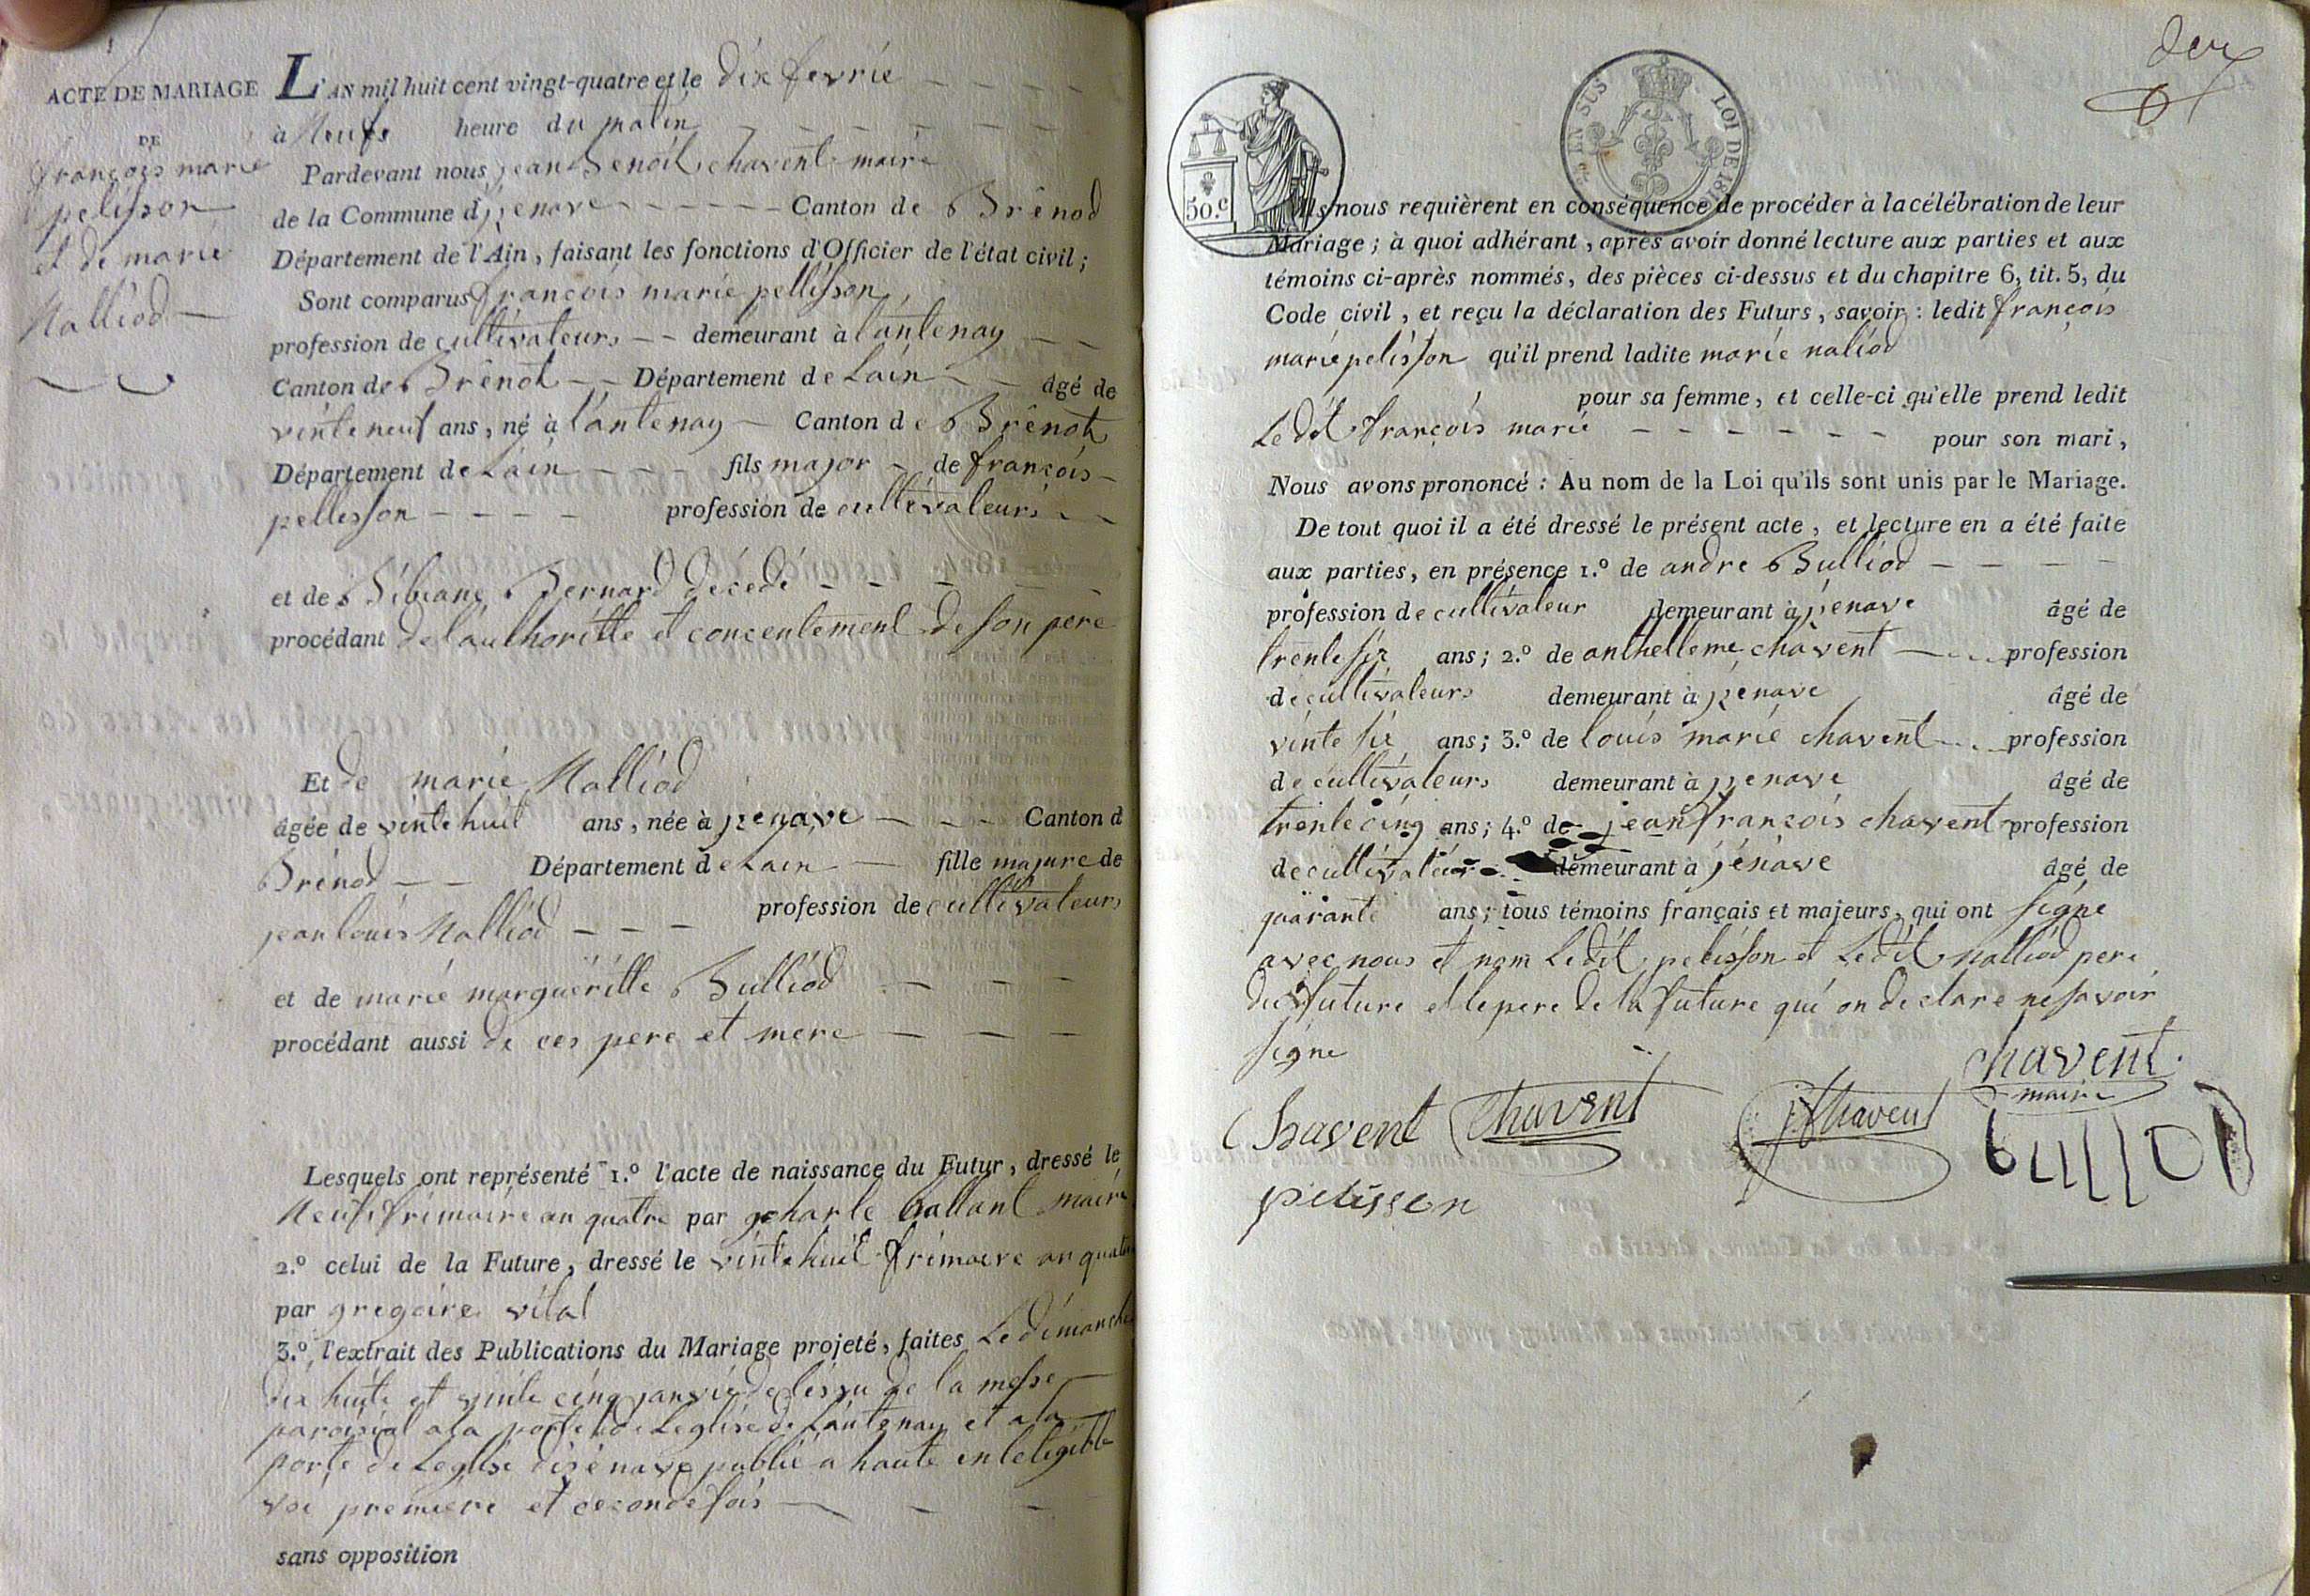 ACTE DE MARIAGE
DE
françois marie
pelisson
et de marie
Nalliod
L'AN mil huit cent vingt-quatre et le dix fevrie
à Neufs heure du matin
Pardevant nous jean Benoit chavent maire
de la Commune d'jzenave Canton de Brênod
Département de l'Ain, faisant les fonctions d'Officier de l'état civil;
Sont comparus françois marie pellisson
profession de cultivateurs demeurant à lantenay
Canton de Brênot Département de Lain âgé de
vinte neuf ans, né à lantenay Canton de Brênot
Département de Lain fils major de françois
pellisson profession de cultivateurs
et de Bibiane Bernard decede
procédant de lauthoritte et concentement de son pere
Et de marie Nalliod
âgée de vinte huit ans, née à jzenave Canton d
Brénod Département de Lain fille majure de
jean louis Nalliod profession de cultivateurs
et de marie marguéritte Bulliod
procédant aussi de ces pere et mere
Lesquels ont représenté 1.º l'acte de naissance du Futur, dressé le
Neuf frimaire an quatre par charle ballant maire
2.º celui de la Future, dressé le vinte huit frimaire an quatre
par gregoire vital
3.º l'extrait des Publications du Mariage projeté, faites Le dimanche
dix huite et vinte cinq janvié a lissu de la messe
paroisial a la porte de Leglise de Lantenay et a la
porte de Leglise disénave publié a haute
voi premiere et cecondefois
sans opposition
deux
50.c
EN SUS
LOI DE 181
Ils nous requièrent en conséquence de procéder à la célébration de leur
Mariage; à quoi adhérant, après avoir donné lecture aux parties et aux
témoins ci-après nommés, des pièces ci-dessus et du chapitre 6, tit. 5, du
Code civil, et reçu la déclaration des Futurs, savoir: ledit françois
marie pelisson qu'il prend ladite marie naliod
pour sa femme, et celle-ci qu'elle prend ledit
Le dit françois marie pour son mari,
Nous avons prononcé: Au nom de la Loi qu'ils sont unis par le Mariage.
De tout quoi il a été dressé le présent acte, et lecture en a été faite
aux parties, en présence 1.º de andre Bulliod
profession de cultivateur demeurant à jzenave âgé de
trente six ans; 2.º de anthelleme chavent profession
de cultivateurs demeurant à jzenave âgé de
vinte six ans; 3.º de louis marie chavent profession
de cultivateurs demeurant à jzenave âgé de
trente cinq ans; 4.º de jean françois chavent profession
de cultivateur demeurant à jzénave âgé de
quarante ans; tous témoins français et majeurs, qui ont signe
avec nous et nom Ledit pelisson et Ledit Nalliod pere
du future et le pere de la future qui on declare ne savoir
signe
chavent
maire
Chavent Chavent jf Chavent bulliod
pelisson